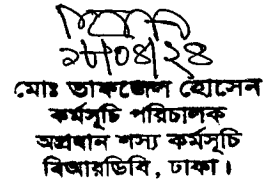 ২৮/০৪/২৪
মোঃ তাফজেল হোসেন
কর্মসূচি পরিচালক
অপ্রধান শস্য কর্মসূচি
বিআরডিবি, ঢাকা।